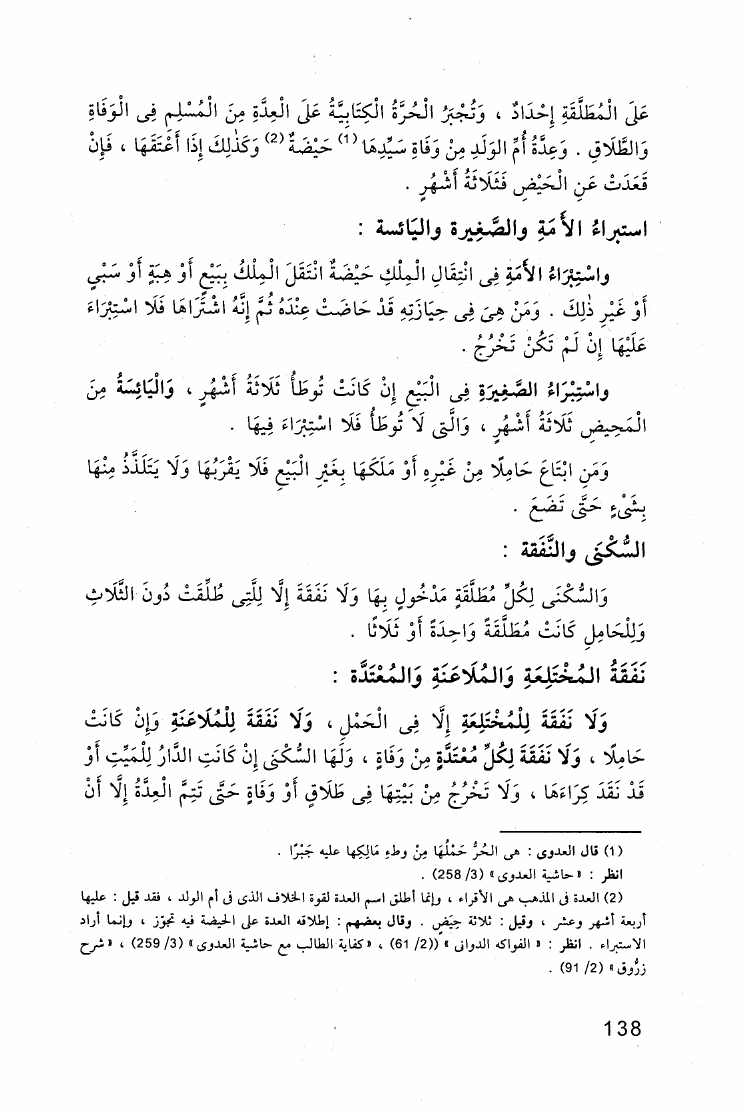 عَلَى الْمُطَلَّقَةِ إِحْدَادٌ ، وَتُجْبَرُ الْحُرَّةُ الْكِتَابِيَّةُ عَلَى الْعِدَّةِ مِنَ الْمُسْلِمِ فِى الْوَفَاةِ
وَالطَّلَاقِ . وَعِدَّةُ أُمِّ الوَلَدِ مِنْ وَفَاةِ سَيِّدِهَا (1) حَيْضَةٌ (2) وَكَذٰلِكَ إِذَا أَعْتَقَهَا ، فَإِنْ
قَعَدَتْ عَنِ الْحَيْضِ فَثَلَاثَةُ أَشْهُرٍ .
استبراءُ الأمَةِ والصَّغِيرة واليَائسة :
واسْتِبْرَاءُ الأَمَةِ فِى انْتِقَالِ الْمِلْكِ حَيْضَةٌ انْتَقَلَ الْمِلْكُ بِبَيْعٍ أَوْ هِبَةٍ أَوْ سَبْيٍ
أَوْ غَيْرِ ذٰلِكَ . وَمَنْ هِىَ فِى حِيَازَتِهِ قَدْ حَاضَتْ عِنْدَهُ ثُمَّ إِنَّهُ اشْتَرَاهَا فَلَا اسْتِبْرَاءَ
عَلَيْهَا إِنْ لَمْ تَكُنْ تَخْرُجُ .
واسْتِبْرَاءُ الصَّغِيرَةِ فِى الْبَيْعِ إِنْ كَانَتْ تُوطَأُ ثَلَاثَةُ أَشْهُرٍ ، وَالْيَائِسَةُ مِنَ
الْمَحِيضِ ثَلَاثَةُ أَشْهُرٍ ، وَالَّتِى لَا تُوطَأُ فَلَا اسْتِبْرَاءَ فِيهَا .
وَمَنِ ابْتَاعَ حَامِلًا مِنْ غَيْرِهِ أَوْ مَلَكَهَا بِغَيْرِ الْبَيْعِ فَلَا يَقْرَبُهَا وَلَا يَتَلَذَّذُ مِنْهَا
بِشَىْءٍ حَتَّى تَضَعَ .
السُّكْنَى والنَّفَقة :
وَالسُّكْنَى لِكُلِّ مُطَلَّقَةٍ مَدْخُولٍ بِهَا وَلَا نَفَقَةَ إِلَّا لِلَّتِى طُلِّقَتْ دُونَ الثَّلَاثِ
وَلِلْحَامِلِ كَانَتْ مُطَلَّقَةً وَاحِدَةً أَوْ ثَلَاثًا .
نَفَقَةُ المُخْتَلِعَةِ وَالمُلَاعَنَةِ وَالمُعْتَدَّة :
وَلَا نَفَقَةَ لِلْمُخْتَلِعَةِ إِلَّا فِى الْحَمْلِ ، وَلَا نَفَقَةَ لِلْمُلَاعَنَةِ وَإِنْ كَانَتْ
حَامِلًا ، وَلَا نَفَقَةَ لِكُلِّ مُعْتَدَّةٍ مِنْ وَفَاةٍ ، وَلَهَا السُّكْنَى إِنْ كَانَتِ الدَّارُ لِلْمَيِّتِ أَوْ
قَدْ نَقَدَ كِرَاءَهَا ، وَلَا تَخْرُجُ مِنْ بَيْتِهَا فِى طَلَاقٍ أَوْ وَفَاةٍ حَتَّى تَتِمَّ الْعِدَّةُ إِلَّا أَنْ
(1) قال العدوى : هى الحُرُّ حَمْلُهَا مِنْ وطءِ مَالِكِها عليه جَبْرًا .
انظر : « حاشية العدوى » (3/ 258) .
(2) العدة فى المذهب هى الأقراء ، وإنما أطلق اسم العدة لقوة الخلاف الذى فى أم الولد ، فقد قيل : عليها
أربعة أشهر وعشر ، وقيل : ثلاثة حِيَضٍ . وقال بعضهم : إطلاقه العدة على الحيضة فيه تجوّز ، وإنما أراد
الاستبراء . انظر : « الفواكه الدوانى » ((2/ 61) ، « كفاية الطالب مع حاشية العدوى » (3/ 259) ، « شرح
زرُّوق » (2/ 91) .
138